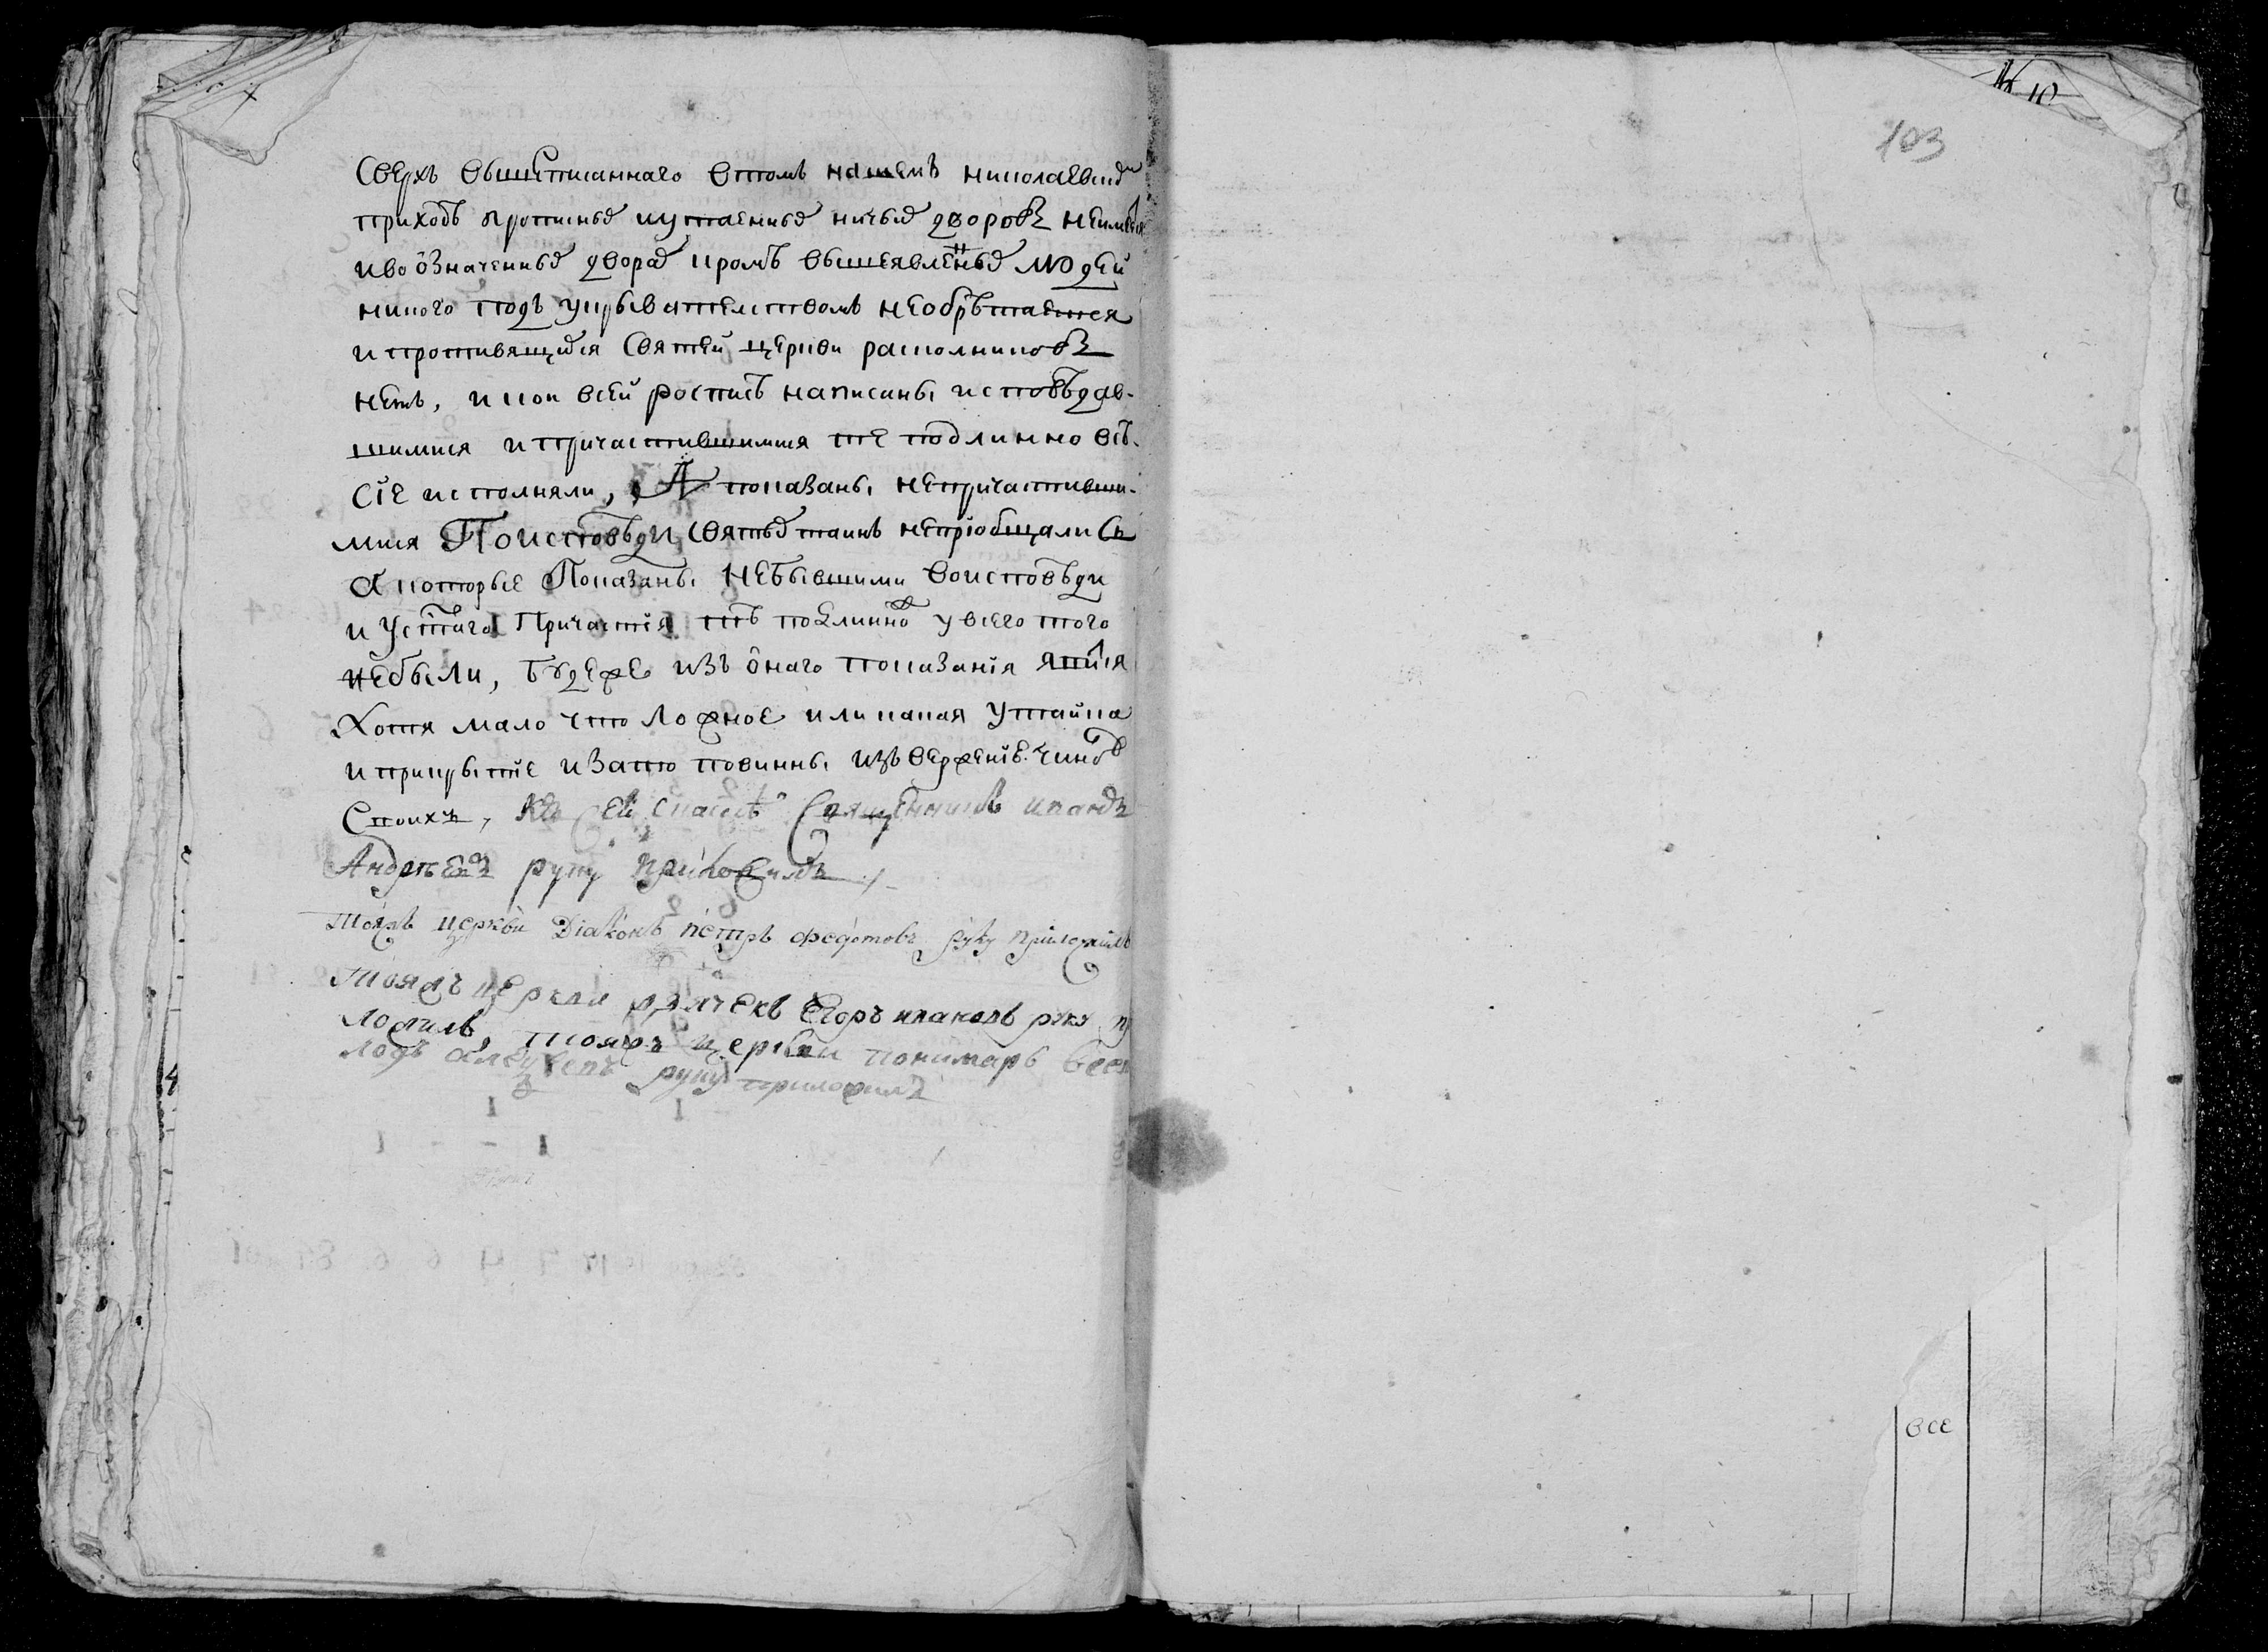 Сверхъ вышеписаннаго втомъ нашемъ николаевскомъ
приходѣ кромныхъ иутаенныхъ ничьихъ дворовъ неимѣется
иво означенныхъ дворах кромѣ вышеявленныхъ людей
никого подъ укрывателствомъ необрѣтается
и противящихся святей церкви расколниковъ
нетъ, и кои всей росписѣ написаны исповѣдав-
шимися и причастившимися те подлинно всѣ
сїе исполняли, А показаны непричастивши-
мися По исповѣди святых таинъ непріобщались
а которые Показаны небывшими воисповѣди
и у стаго Причастїя тѣ подлинно у всего того
небыли, буде же изъ онаго показанїя явится
хотя мало что ложное или какая утайка
и прикрытїе изато повинны изверженїе чиновъ
своихъ, Къ сей Священникъ иванъ
Андрѣевъ руку приложилъ
тояжъ церкви Diаконъ петръ федотовъ руку приложилъ
тояжъ церкви дьячекъ Егоръ иваковъ руку при
ложилъ, тояжъ церкви понимарь
руку приложилъ
№ 10
103
все